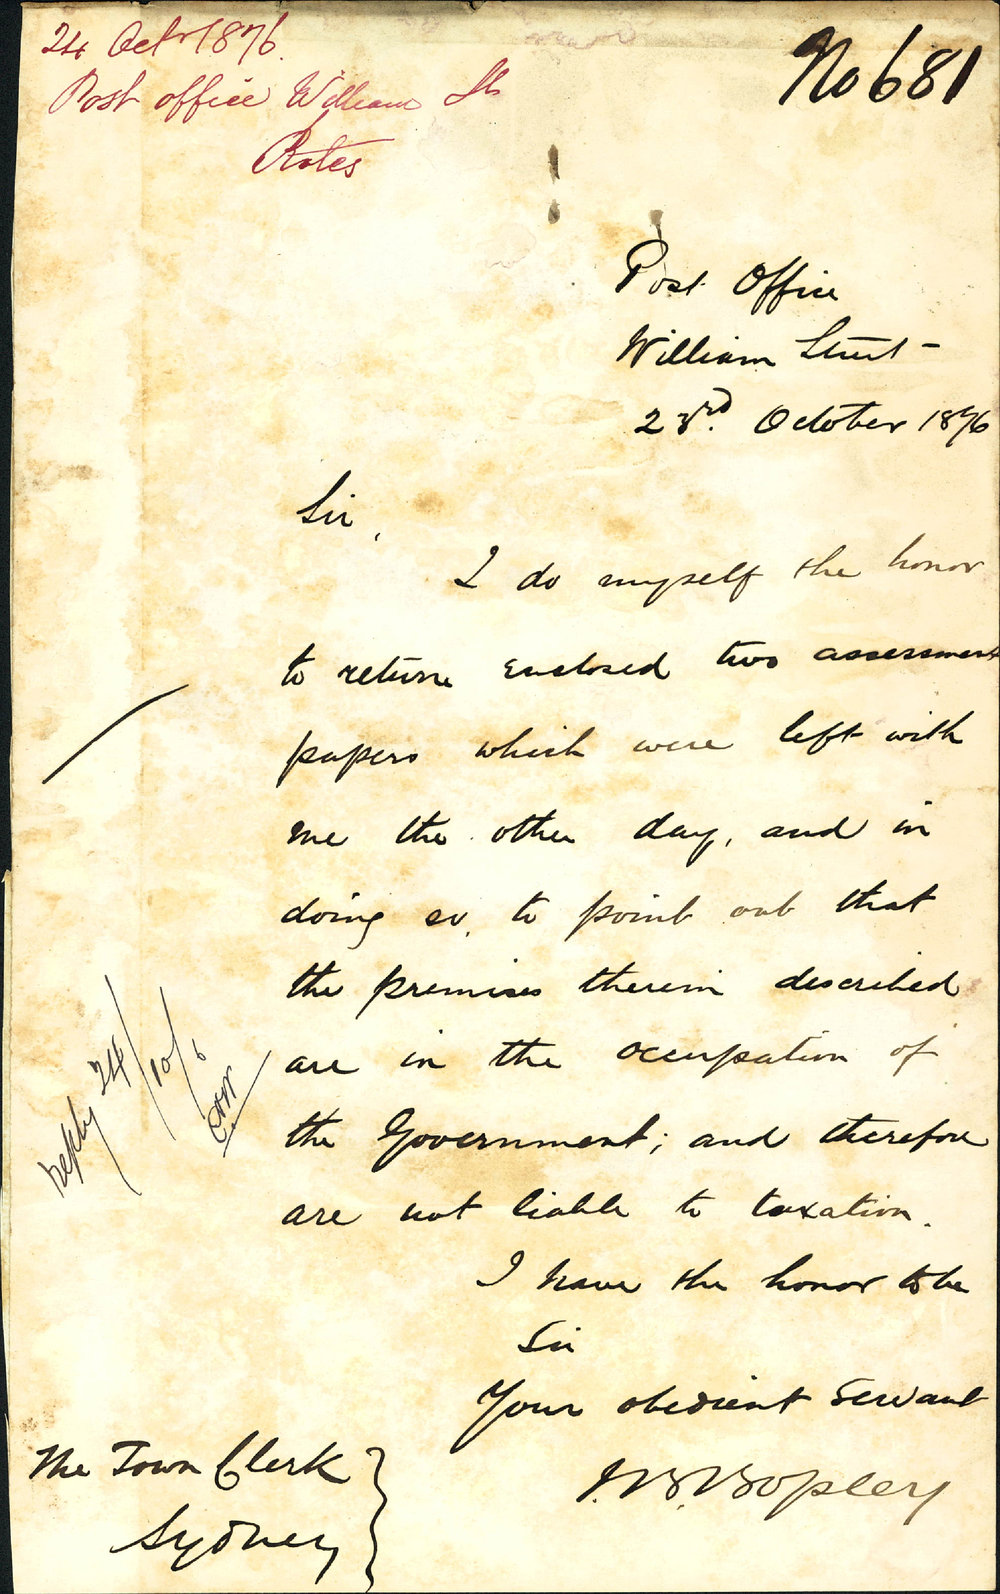 24 Octr 1876.
Post office William St
Rates
No 681
Post Office
William Street -
23rd. October 1876
Sir,
I do myself the honor
to return enclosed two assessment
papers which were left with
me the other day, and in
doing so, to point out that
the premises therein described
are in the occupation of
the Government; and therefore
are not liable to taxation.
reply 24/10/6
I have the honor to be
Sir
Your obedient Servant
The Town Clerk
Sydney